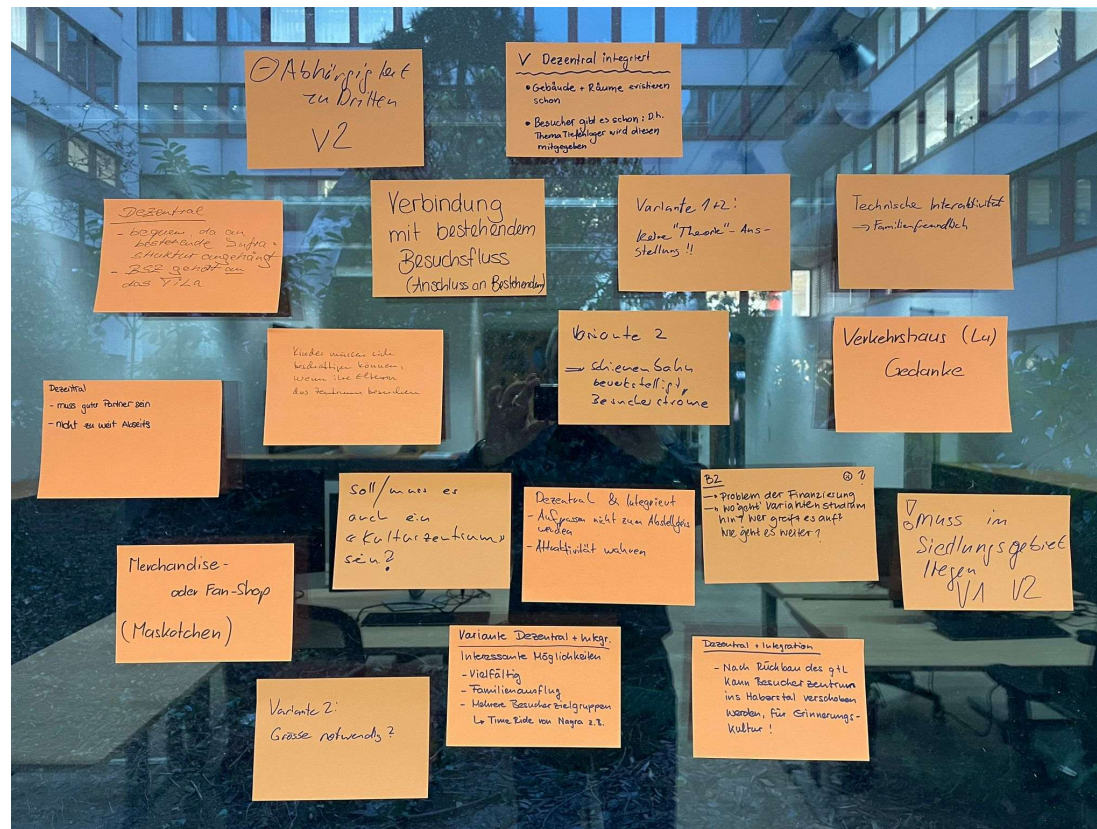 ⊖ Abhängigkeit
zu Dritten
V2
V Dezentral integriert
• Gebäude + Räume existieren
schon
• Besucher gibt es schon; D.h.
Thema Tiefenlager wird diesen
mitgegeben
Dezentral
- bequem, da an
bestehende Infra-
struktur angehängt
- BSZ gehört an
das TiLa
Verbindung
mit bestehendem
Besuchsfluss
(Anschluss an Bestehendem)
Variante 1+2:
keine "Theorie"-Aus-
stellung !!
Technische Interaktivität
→ Familienfreundlich
Dezentral
- muss guter Partner sein
- nicht zu weit Abseits
Kinder müssen sich
beschäftigen können,
wenn ihre Eltern
das Zentrum besuchen
Variante 2
⇒ schienen Bahn
bewerkstelligt
Besucherströme
Verkehrshaus (Lu)
Gedanke
Soll/muss es
auch ein
«Kulturzentrum»
sein?
Dezentral & Integriert
- Aufpassen nicht zum Abstellgleis
werden
- Attraktivität wahren
B2
→ Problem der Finanzierung
→ wo geht Variantenstudium
hin? Wer greift es auf?
Wie geht es weiter?
Muss im
Siedlungsgebiet
liegen
V1 V2
Merchandise-
oder Fan-Shop
(Maskotchen)
Variante 2:
Grösse notwendig?
Variante Dezentral + Integr.
Interessante Möglichkeiten
- Vielfältig
- Familienausflug
- Mehrere Besucherzielgruppen
↳ Time Ride von Nagra z.B.
Dezentral + Integration
- Nach Rückbau des gtL
kann Besucherzentrum
ins Haberstal verschoben
werden, für Erinnerungs-
kultur !